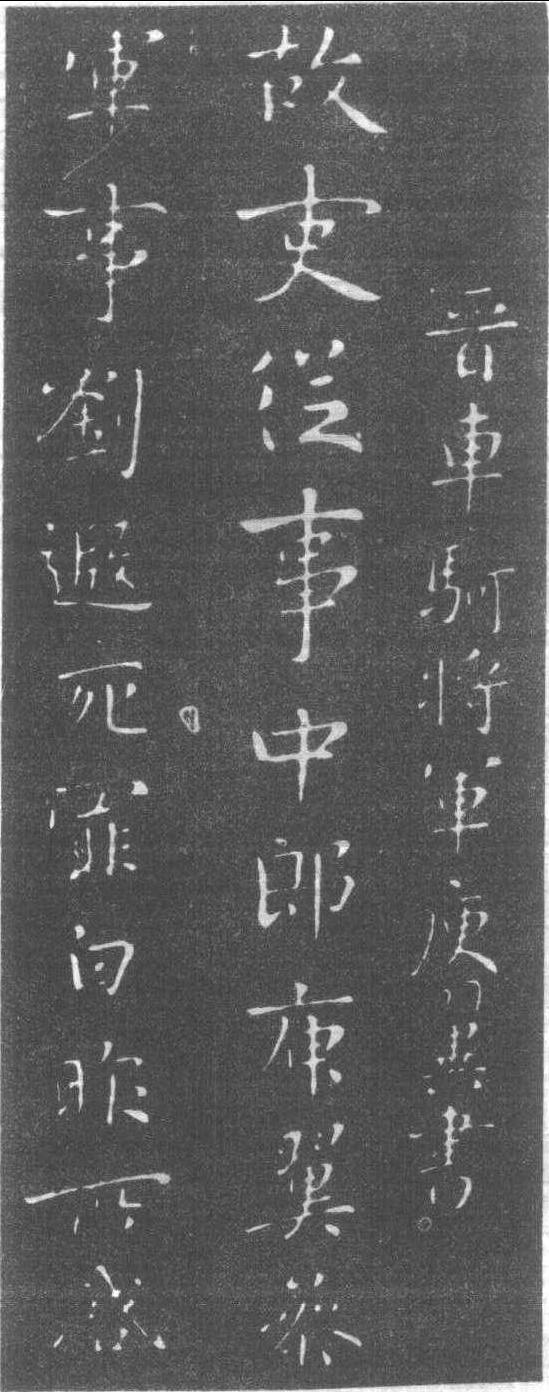 晉車騎將軍庾翼書
故吏從事中郎庾翼參
軍事劉遐死罪白昨所啟